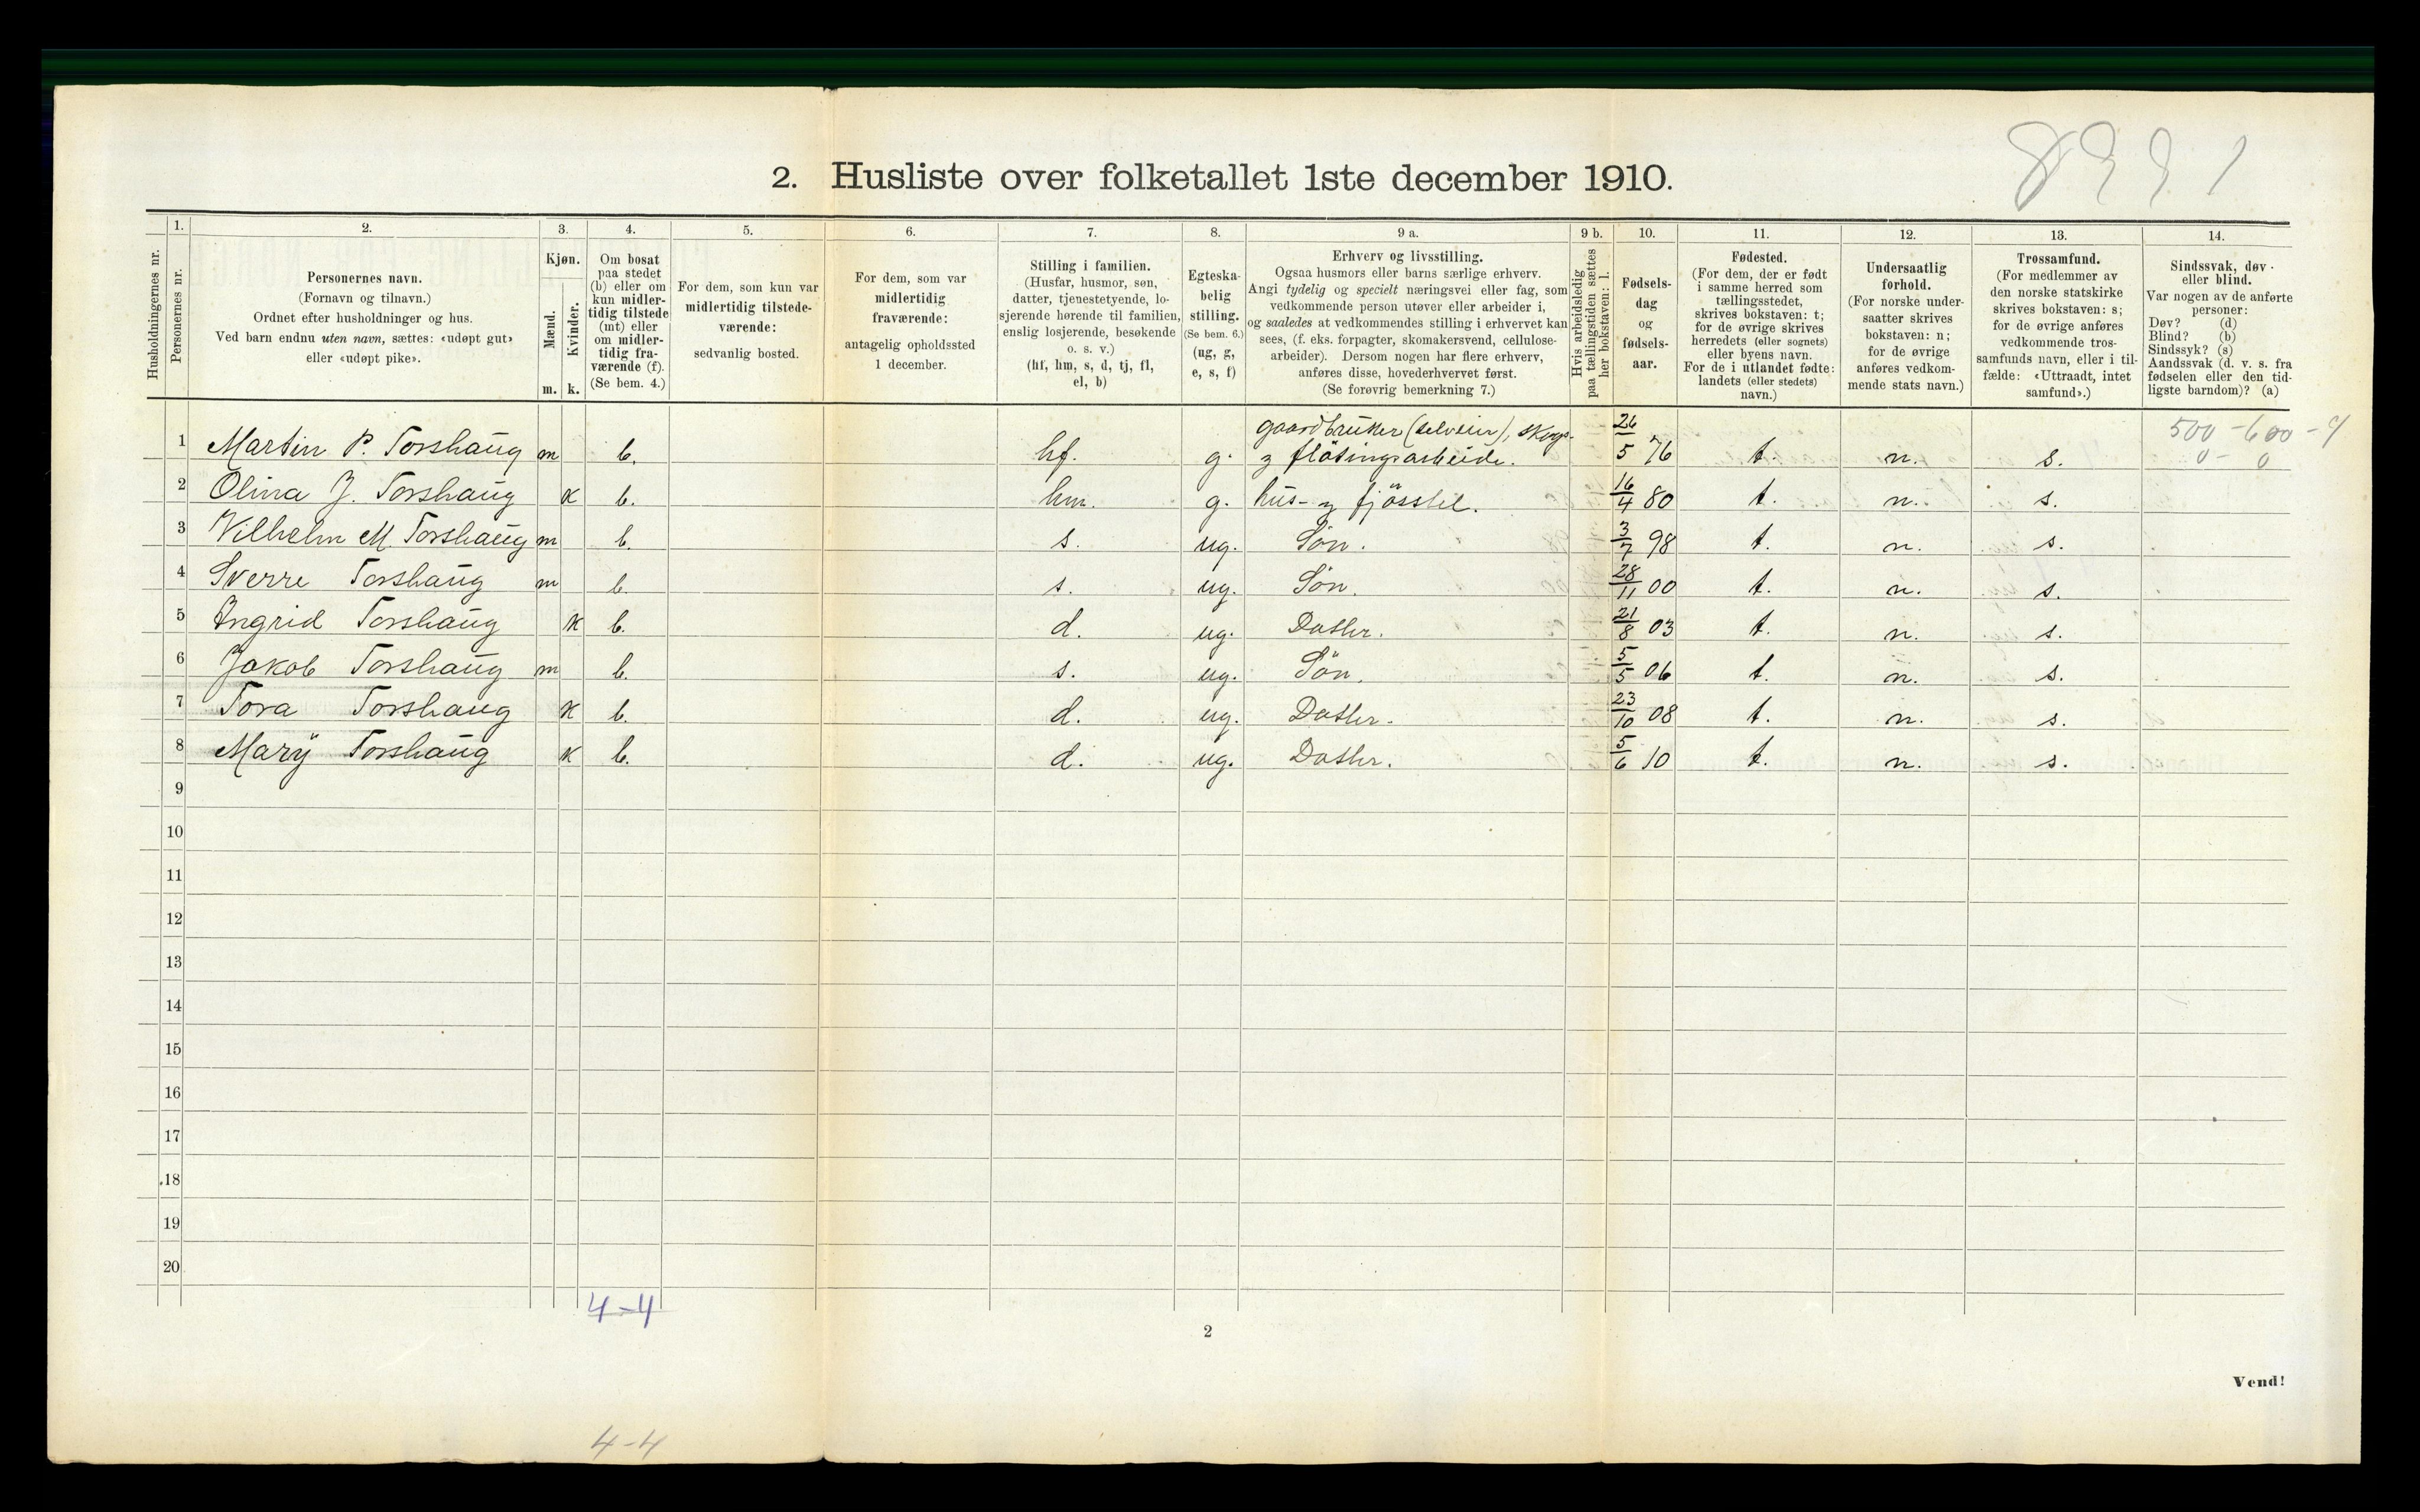 8991
2. Husliste over folketallet 1ste december 1910.
Husholdningernes nr.
1.
Personernes nr.
2.
Personernes navn.
(Fornavn og tilnavn.)
Ordnet efter husholdninger og hus.
Ved barn endnu uten navn, sættes: «udøpt gut»
eller «udøpt pike».
3.
Kjøn.
Mænd.
m.
Kvinder.
k.
4.
Om bosat
paa stedet
(b) eller om
kun midler-
tidig tilstede
(mt) eller
om midler-
tidig fra-
værende (f).
(Se bem. 4.)
5.
For dem, som kun var
midlertidig tilstede-
værende:
sedvanlig bosted.
6.
For dem, som var
midlertidig
fraværende:
antagelig opholdssted
1 december.
7.
Stilling i familien.
(Husfar, husmor, søn,
datter, tjenestetyende, lo-
sjerende hørende til familien,
enslig losjerende, besøkende
o. s. v.)
(hf, hm, s, d, tj, fl,
el, b)
8.
Egteska-
belig
stilling.
(Se bem. 6.)
(ug, g,
e, s, f)
9 a.
Erhverv og livsstilling.
Ogsaa husmors eller barns særlige erhverv.
Angi tydelig og specielt næringsvei eller fag, som
vedkommende person utøver eller arbeider i,
og saaledes at vedkommendes stilling i erhvervet kan
sees, (f. eks. forpagter, skomakersvend, cellulose-
arbeider). Dersom nogen har flere erhverv,
anføres disse, hovederhvervet først.
(Se forøvrig bemerkning 7.)
9 b.
Hvis arbeidsledig
paa tællingstiden sættes
her bokstaven: l.
10.
Fødsels-
dag
og
fødsels-
aar.
11.
Fødested.
(For dem, der er født
i samme herred som
tællingsstedet,
skrives bokstaven: t;
for de øvrige skrives
herredets (eller sognets)
eller byens navn.
For de i utlandet fødte:
landets (eller stedets)
navn.)
12.
Undersaatlig
forhold.
(For norske under-
saatter skrives
bokstaven: n;
for de øvrige
anføres vedkom-
mende stats navn.)
13.
Trossamfund.
(For medlemmer av
den norske statskirke
skrives bokstaven: s;
for de øvrige anføres
vedkommende tros-
samfunds navn, eller i til-
fælde: «Uttraadt, intet
samfund».)
14.
Sindssvak, døv
eller blind.
Var nogen av de anførte
personer:
Døv? (d)
Blind? (b)
Sindssyk? (s)
Aandssvak (d. v. s. fra
fødselen eller den tid-
ligste barndom)? (a)
gaardbruker (selveier), skogs- 500 - 600 -
1 Martin P. Torshaug m b. hf. g. & flötingsarbeide. 26/5 76 t. n. s. 0 - 0
2 Olina J. Torshaug K b. hm. g. hus- & fjösstel. 16/4 80 t. n. s.
3 Vilhelm M. Torshaug m b. s. ug. Sön. 3/7 98 t. n. s.
4 Sverre Torshaug m b. s. ug. Sön. 28/11 00 t. n. s.
5 Ingrid Torshaug K b. d. ug. Datter. 21/8 03 t. n. s.
6 Jakob Torshaug m b. s. ug. Sön. 5/5 06 t. n. s.
7 Tora Torshaug K b. d. ug. Datter. 23/10 08 t. n. s.
8 Mary Torshaug K b. d. ug. Datter. 5/6 10 t. n. s.
9
10
11
12
13
14
15
16
17
18
19
20
4-4
2
Vend!
4-4